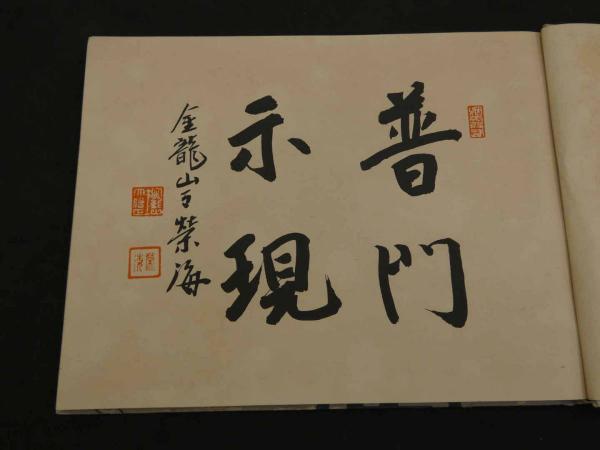 普門
示現
金龍山主榮海